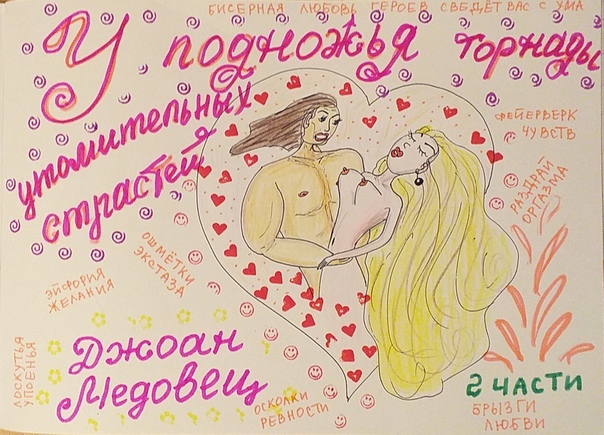 БИСЕРНАЯ ЛЮБОВЬ ГЕРОЕВ СВЕДЁТ ВАС С УМА
У подножья торнады
утомительных
страстей
ФЕЙЕРВЕРК
ЧУВСТВ
РАЗДРАЙ
ОРГАЗМА
ОШМЁТКИ
ЭКСТАЗА
ЭЙФОРИЯ
ЖЕЛАНИЯ
ЛОСКУТЬЯ
УПОЕНЬЯ
Джоан
Медовец
ОСКОЛКИ
РЕВНОСТИ
2 ЧАСТИ
БРЫЗГИ
ЛЮБВИ